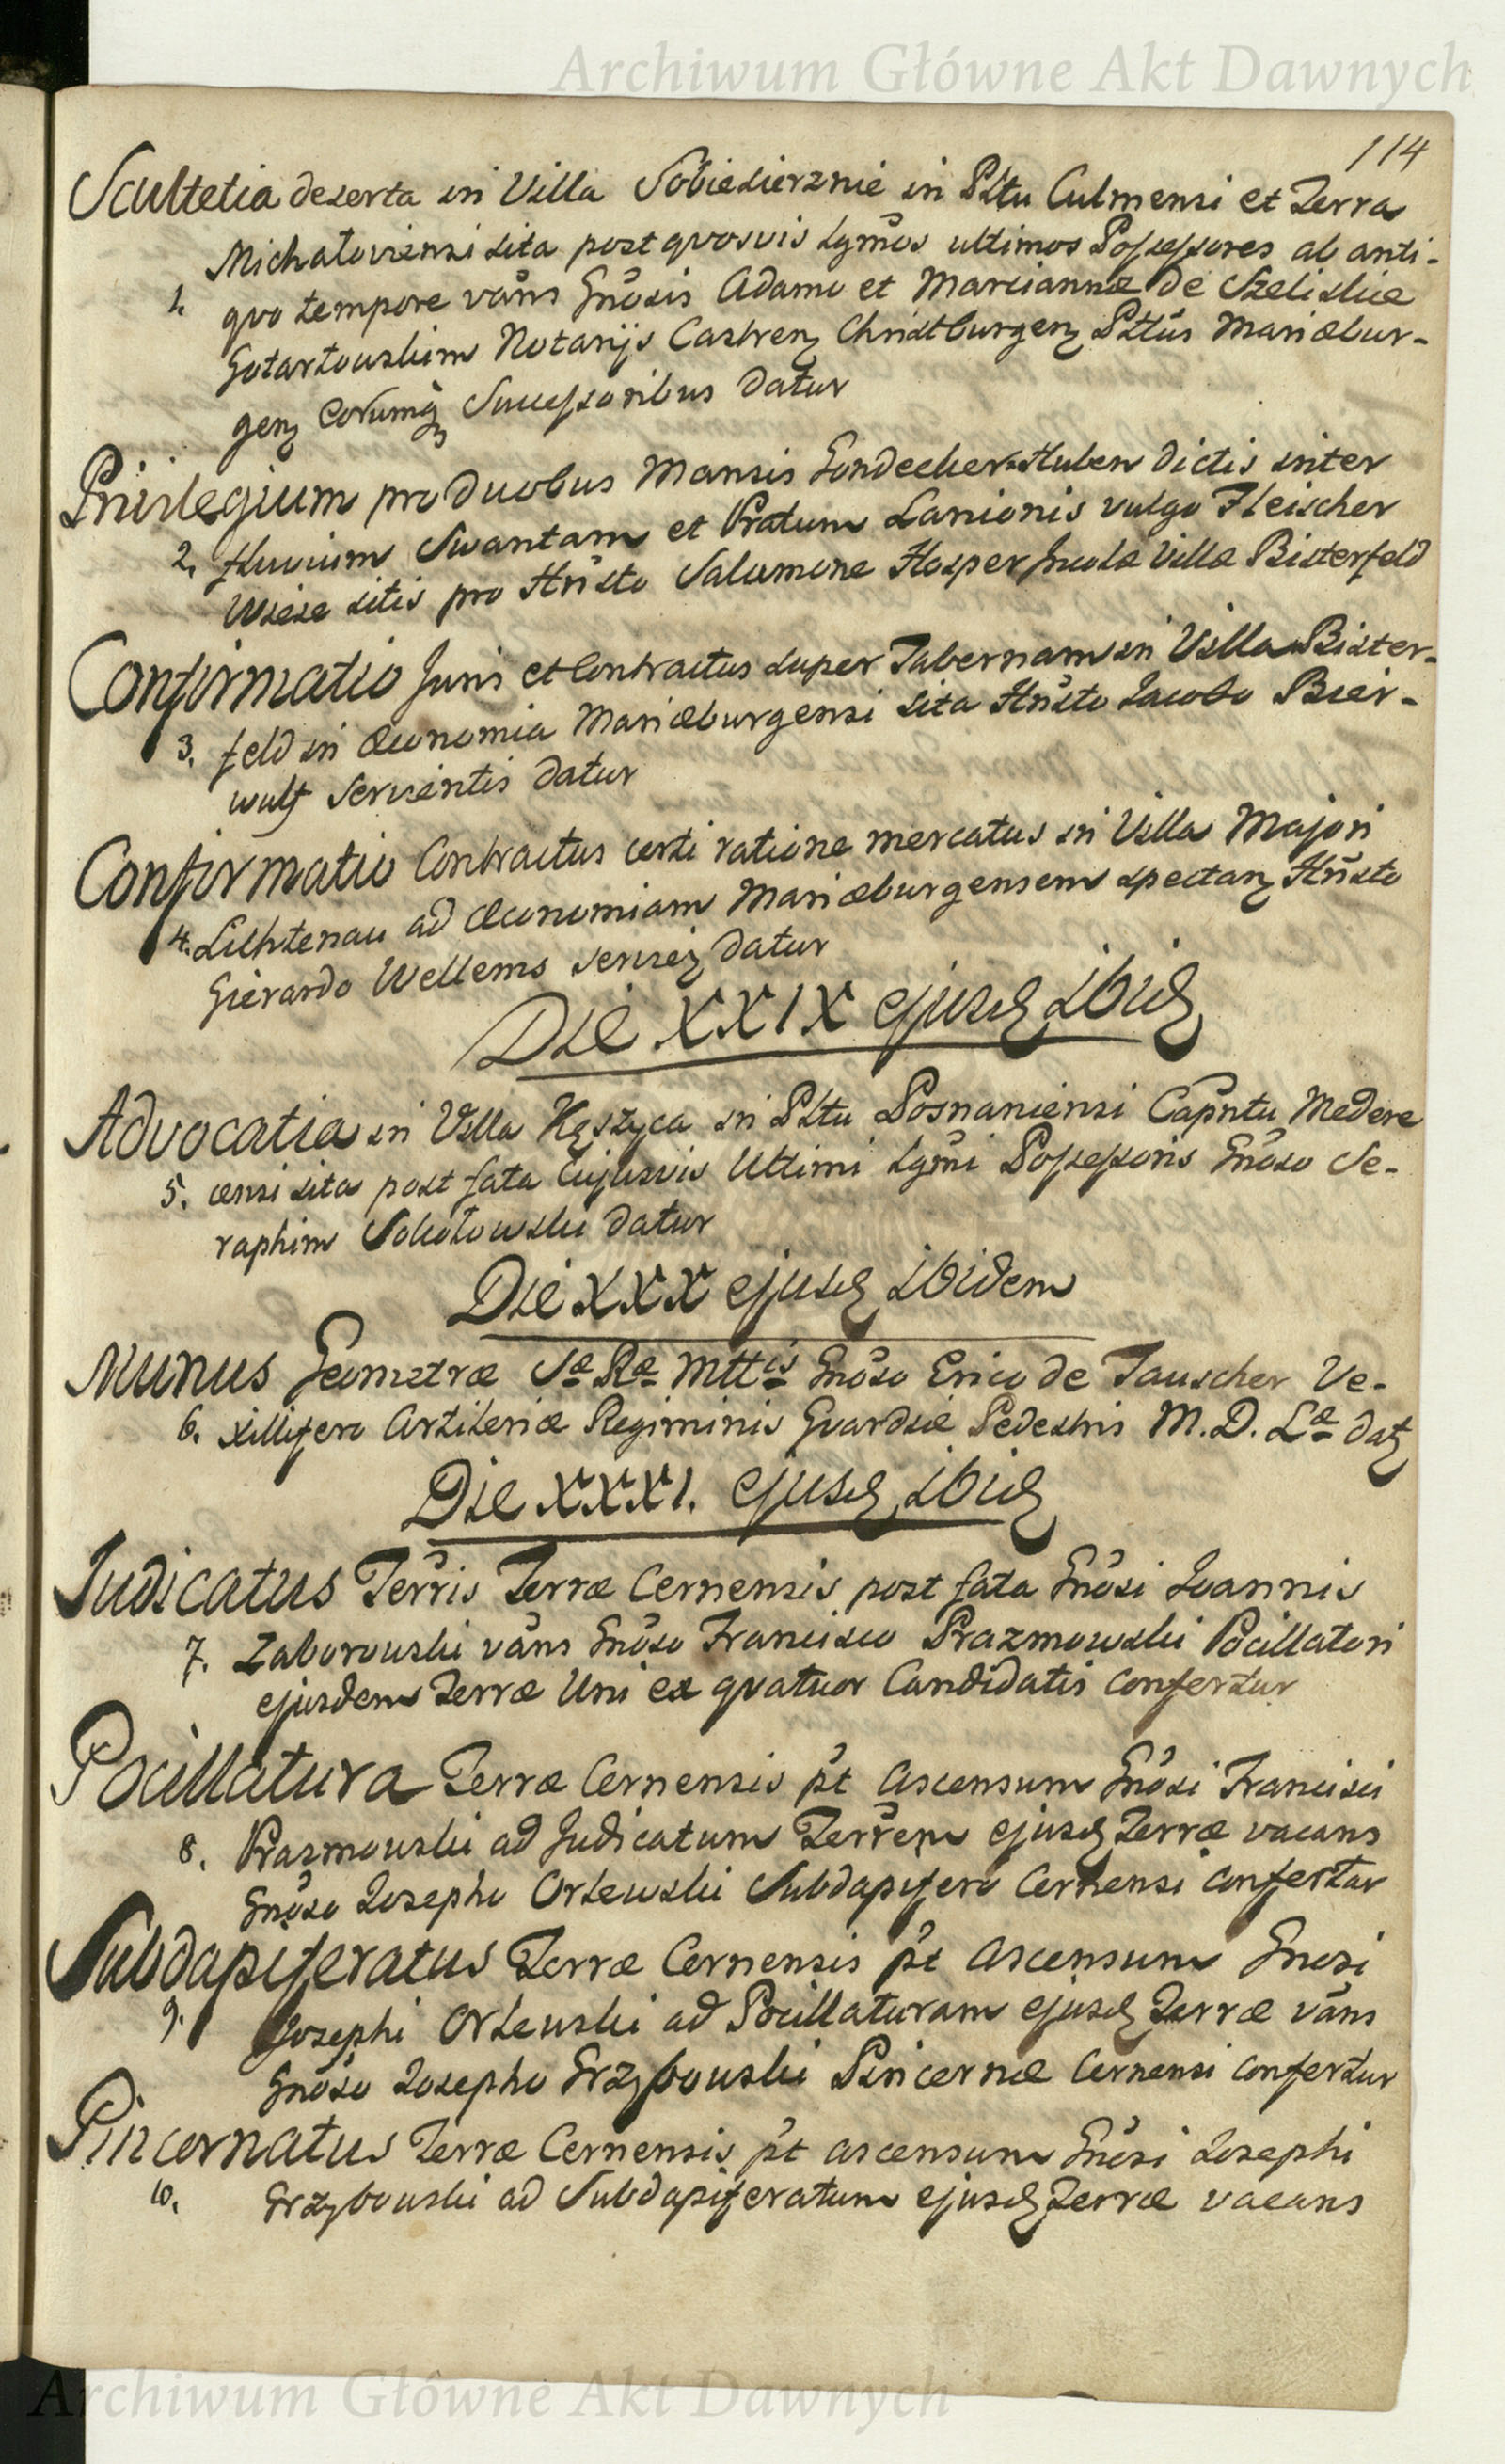 Archiwum Główne Akt Dawnych
114
Scultetia deserta in Villa Sobiesierznie in Pltu Culmensi et Terra
Michaloviensi sita post quosvis Lgmos ultimos Possessores ab anti-
1. quo tempore vans Gnosis Adamo et Mariannæ de Szeliskie
Gotartowskim Notarijs Castren Christburgen Pltus Mariæbur-
gen eorumq Successoribus datur
Privilegium pro duobus Mansis Gondecker-Huben dictis inter
2. fluvium Swantam et Pratum Lanionis vulgo Fleischer
Wiese sitis pro Hnsto Salomone Hosper Incola Villæ Bisterfeld
Confirmatio Juris et Contractus super Tabernam in Villa Bister-
3. feld in Œconomia Mariæburgensi sita Hnsto Jacobo Bier-
wulf Servientis datur
Confirmatio Contractus certi ratione mercatus in Villa Majori
4. Lichtenau ad Œconomiam Mariæburgensem spectan Hnsto
Gierardo Wellems servien datur
Die XXIX ejusd ibid
Advocatia in Villa Kęszyca in Pltu Posnaniensi Capntu Medere
5. censi sita post fata Cujusvis Ultimi Lgmi Possessoris Gnoso Se-
raphim Sokołowski datur
Die XXX ejusd ibidem
Munus Geometræ Sæ Ræ Mttis Gnoso Erico de Tauscher Ve-
6. xillifero Artileriæ Regiminis Gvardiæ Pedestris M. D. Læ dat
Die XXXI. ejusd ibid
Judicatus Terris Terræ Cernensis post fata Gnosi Joannis
7. Zaborowski vans Gnoso Francisco Prazmowski Pocillatori
ejusdem Terræ Uni ex qvatuor Candidatis confertur
Pocillatura Terræ Cernensis pt ascensum Gnosi Francisci
8. Prazmowski ad Judicatum Terrem ejusd Terræ vacans
Gnoso Josepho Orłewski Subdapifero Cernensi confertur
Subdapiferatus Terræ Cernensis pt ascensum Gnosi
9. Josephi Orłewski ad Pocillaturam ejusd Terræ vans
Gnoso Josepho Grzybowski Pincernæ Cernensi confertur
Pincernatus Terræ Cernensis pt ascensum Gnosi Josephi
10. Grzybowski ad Subdapiferatum ejusd Terræ vacans
Archiwum Główne Akt Dawnych